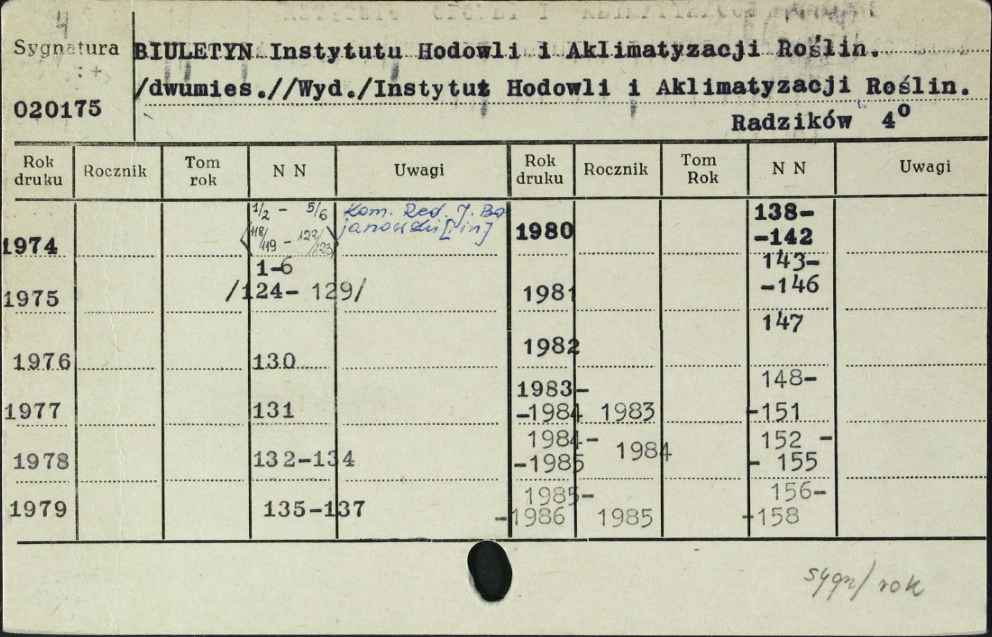 4
Sygnatura BIULETYN Instytutu Hodowli i Aklimatyzacji Roślin.
/dwumies.//Wyd./Instytut Hodowli i Aklimatyzacji Roślin.
020175
Radzików 4°
Rok druku Rocznik Tom rok N N Uwagi Rok druku Rocznik Tom Rok N N Uwagi
1974 1/2 - 5/6 Kom. Red. J. Bo
118/119 - 122/123 janowski [i in]
1980 138-
-142
1-6
1975 /124- 129/
1981 143-
-146
1976 130
1982 147
1977 131
1983-
-1984 1983 148-
-151
1978 132-134
1984-
-1985 1984 152 -
- 155
1979 135-137
1985-
-1986 1985 156-
-158
sygn/ rok